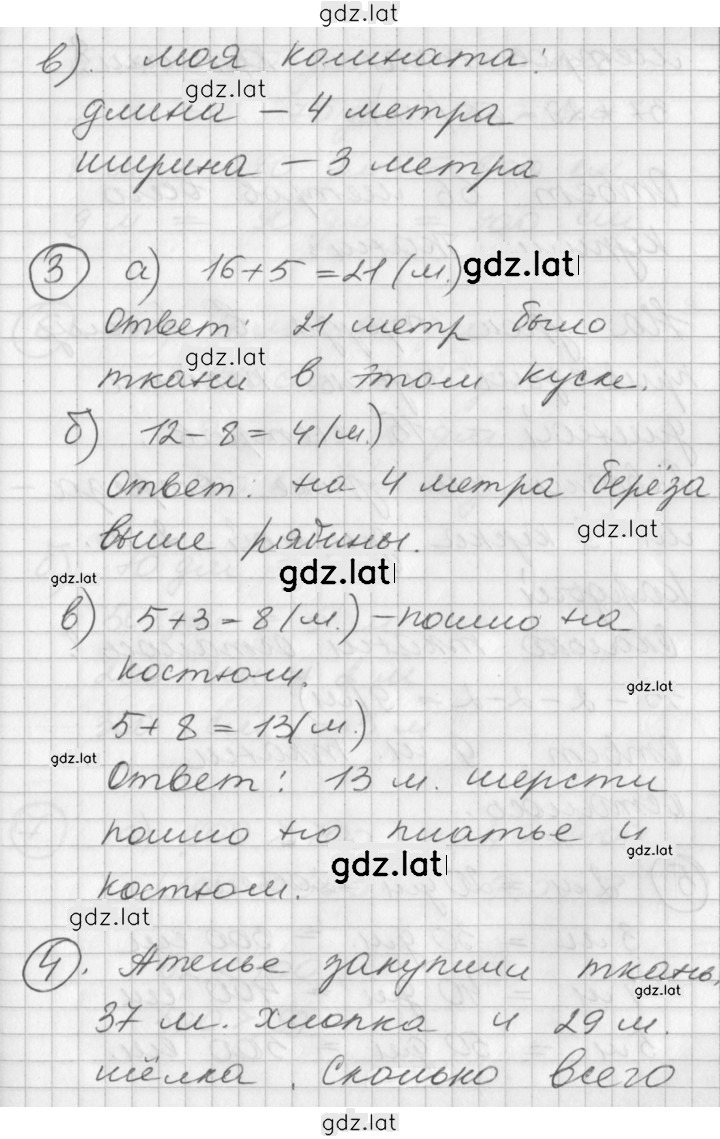 gdz.lat
в). моя комната:
gdz.lat
длина – 4 метра
ширина – 3 метра
3 а) 16+5=21(м.) gdz.lat
Ответ: 21 метр было
gdz.lat
ткани в этом куске.
б) 12-8=4(м.)
Ответ: на 4 метра берёза
выше рябины. gdz.lat
gdz.lat gdz.lat
в) 5+3=8(м.) – пошло на
костюм. gdz.lat
5+8=13(м.)
gdz.lat
Ответ: 13 м. шерсти
пошло на платье и
gdz.lat gdz.lat
костюм.
gdz.lat
4. Ателье закупили ткань,
gdz.lat
37 м. хлопка и 29 м.
шёлка. Сколько всего
gdz.lat